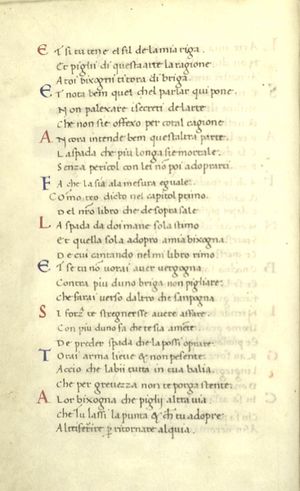 E T si tu tene el fil de la mia riga.
Et pigli di questa arte la ragione
A toi bixogni ti tora di briga
E T nota bem quel chel parlar qui pone.
Non palexare i secreti de larte
Che non sie offexo per cotal cagione
A Ncora intende bem questaltra parte.
La spada che piu longa sie mortale.
Senza pericol con lei nō poi adoprarti
F A che la sia a la mesura eguale
Como teo dicto nel capitol primo
Del nr̄o libro che de sopra sale
L A spada da doi mane sola stimo
Et quella sola adopro a mia bixogna
De cui cantando nel mi libro rimo
E T se tu nō vorai aver vergogna
Contra piu duno briga non pigliare
Che farai verso daltro che sampogna
S I forza te stregnesse avere affare
Con piu duno fa che te sia amēte
De prēder spada che la possi oprare
T Orai arma lieve & non pesente.
Accio che labii tutta in tua balia.
Che per grevezza non te porga stente.
A Lor bixogna che pigli altra via
Che tu lassi la punta & ch̄ tu adopre
Altro ferire p̄ ritornate al quia.